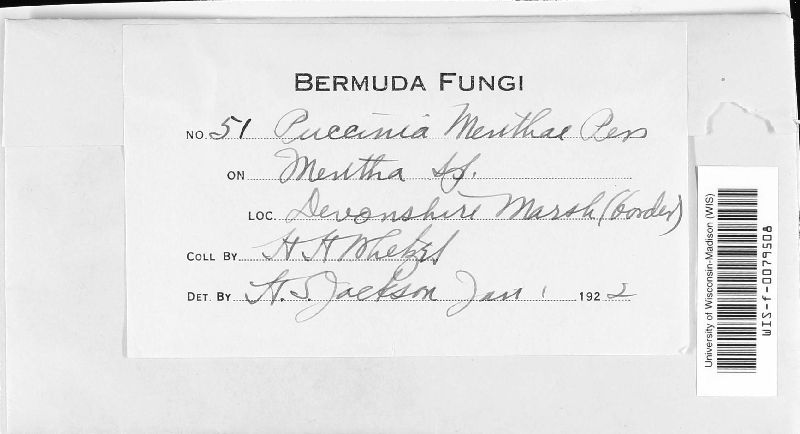 BERMUDA FUNGI
NO. 51 Puccinia Menthae Pers
ON Mentha sp.
LOC. Devonshire Marsh (border)
COLL BY H H Whetzel
DET. BY H. S. Jackson Jan 1 1922
University of Wisconsin-Madison (WIS)
WIS-f-0079508